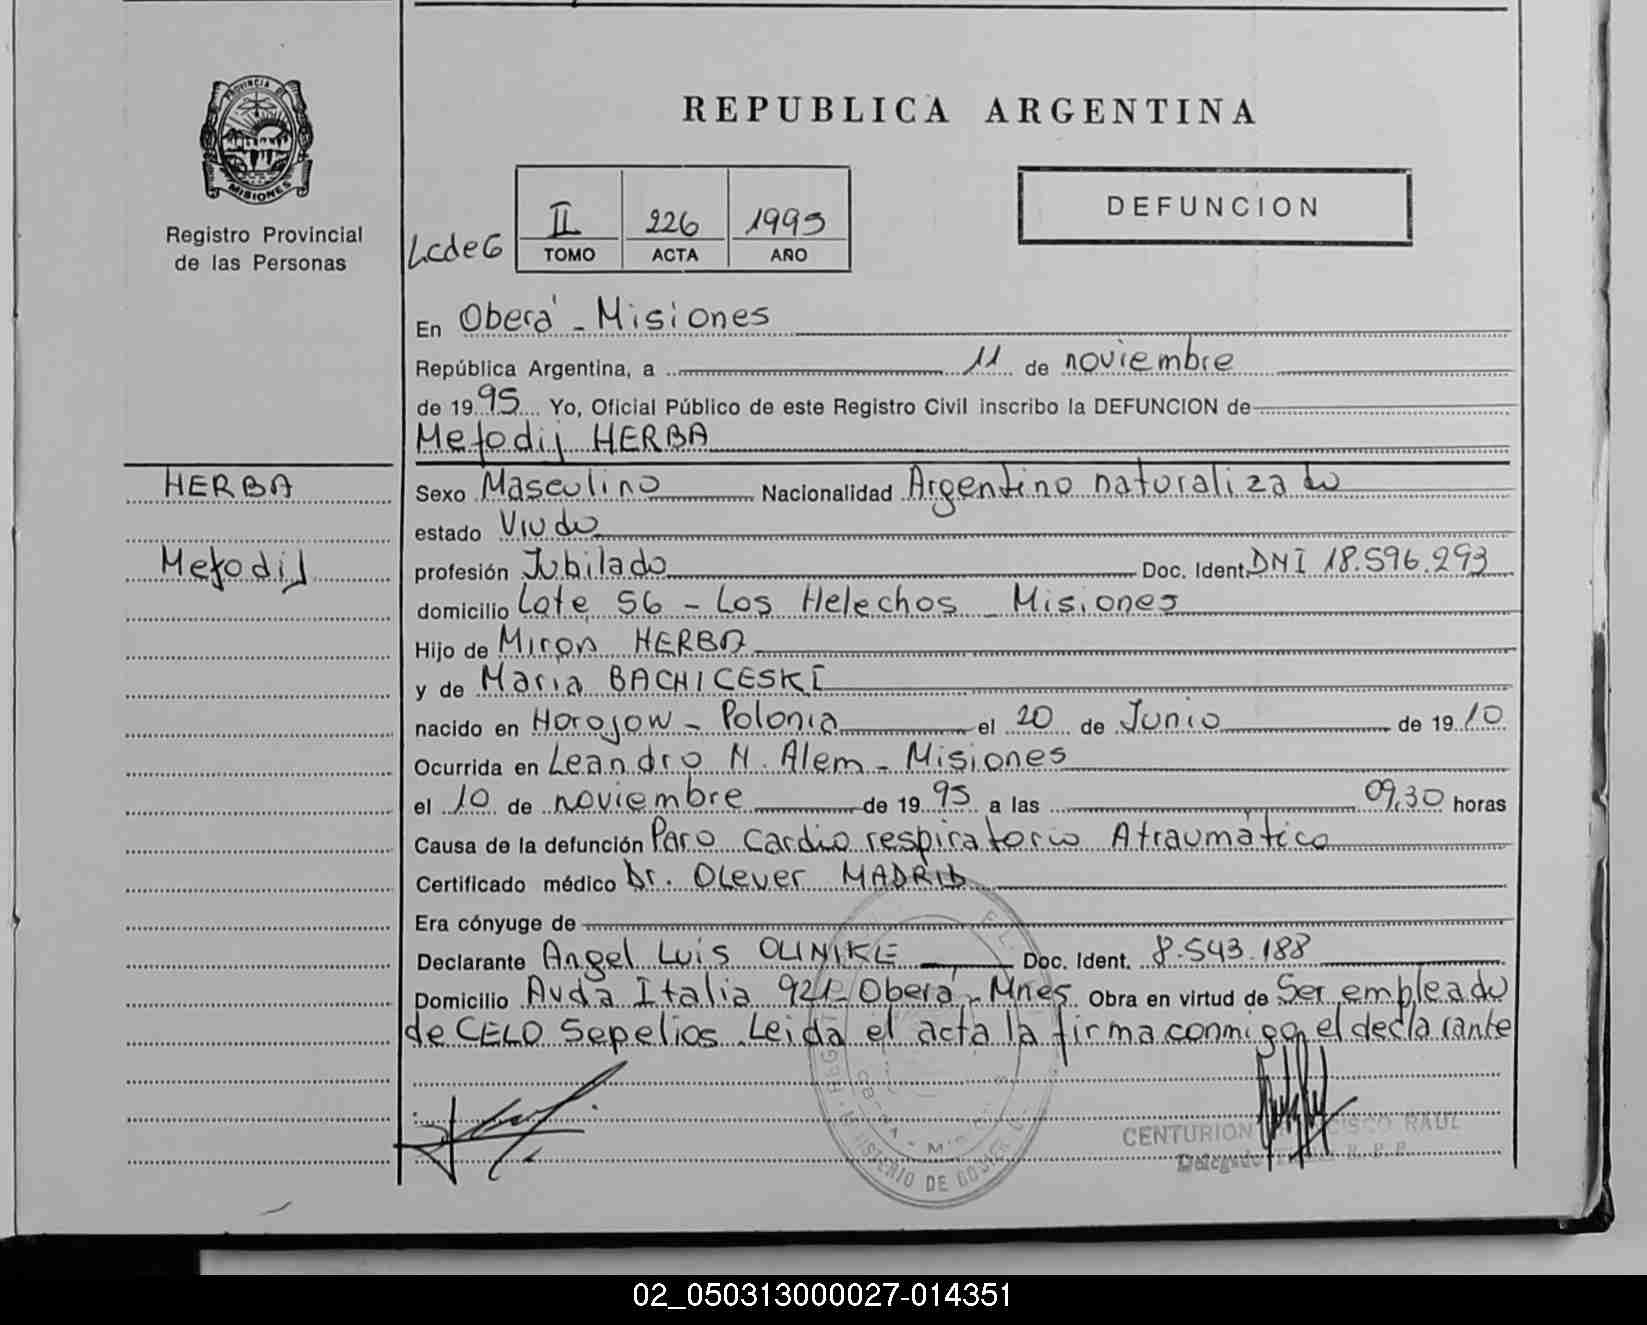 PROVINCIA DE
MISIONES
Registro Provincial
de las Personas
REPUBLICA ARGENTINA
DEFUNCION
LcdeG
II 226 1995
TOMO ACTA AÑO
En Oberá - Misiones
República Argentina, a 11 de noviembre
de 1995 Yo, Oficial Público de este Registro Civil inscribo la DEFUNCION de
Mefodij HERBA
HERBA
Mefodij
Sexo Masculino Nacionalidad Argentino naturalizado
estado Viudo
profesión Jubilado Doc. Ident. DNI 18.596.293
domicilio Lote 56 - Los Helechos - Misiones
Hijo de Miron HERBA
y de Maria BACHICESKI
nacido en Horojow - Polonia el 20 de Junio de 1910
Ocurrida en Leandro N. Alem - Misiones
el 10 de noviembre de 1995 a las 09,30 horas
Causa de la defunción Paro Cardio respiratorio Atraumático
Certificado médico Dr. Olever MADRID
Era cónyuge de
Declarante Angel Luis OLINIKE Doc. Ident. 8.543.188
Domicilio Avda Italia 921 - Oberá - Mnes Obra en virtud de Ser empleado
de CELO Sepelios. Leida el acta la firma conmigo el declarante
MINISTERIO DE GOBIER
CENTURION FRANCISCO RAUL
Delegado R. P. P.
02_050313000027-014351